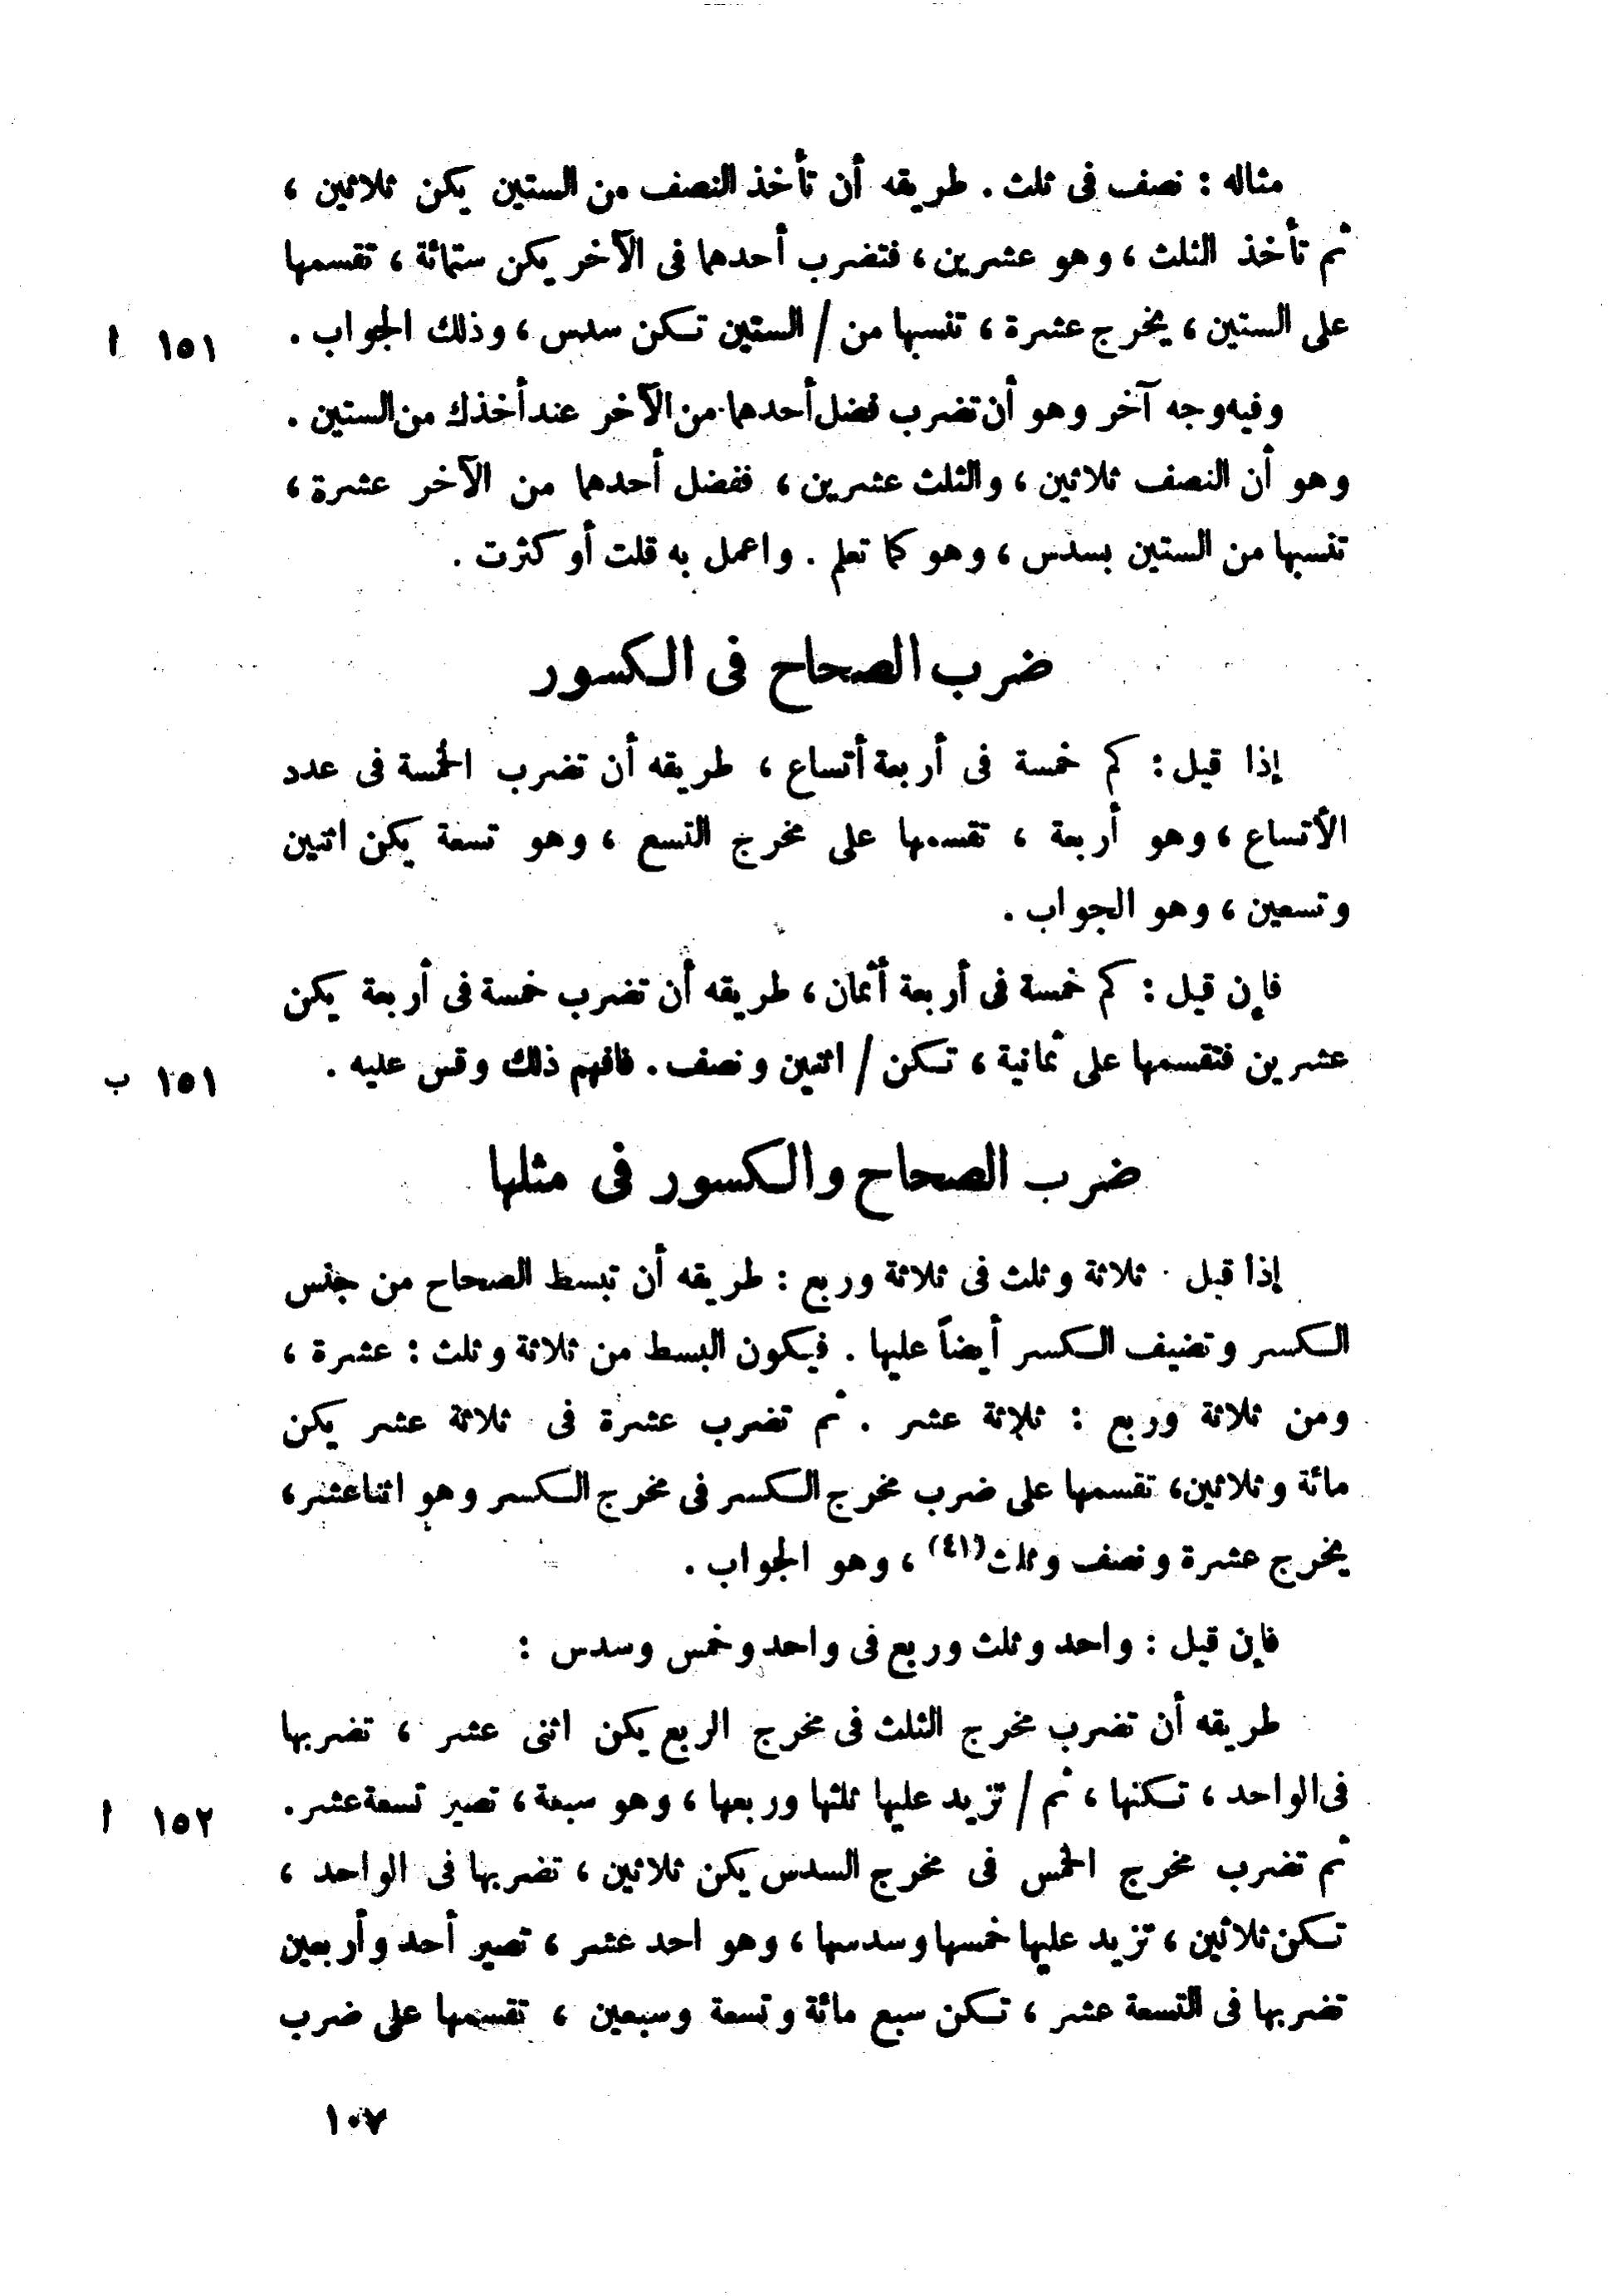 مثاله : نصف فى ثلث . طريقه أن تأخذ النصف من الستين يكن ثلاثين ،
ثم تأخذ الثلث ، وهو عشرين ، فتضرب أحدهما فى الآخر يكن ستمائة ، تقسمها
على الستين ، يخرج عشرة ، تنسبها من / الستين تكن سدس ، وذلك الجواب .
١٥١ ا
وفيه وجه آخر وهو أن تضرب فضل أحدهما من الآخر عند أخذك من الستين .
وهو أن النصف ثلاثين ، والثلث عشرين ، ففضل أحدهما من الآخر عشرة ،
تنسبها من الستين بسدس ، وهو كما تعلم . واعمل به قلت أو كثرت .
ضرب الصحاح فى الكسور
إذا قيل : كم خمسة فى أربعة أتساع ، طريقه أن تضرب الخمسة فى عدد
الأتساع ، وهو أربعة ، تقسمها على مخرج التسع ، وهو تسعة يكن اثنين
وتسعين ، وهو الجواب .
فإن قيل : كم خمسة فى أربعة أثمان ، طريقه أن تضرب خمسة فى أربعة يكن
عشرين فتقسمها على ثمانية ، تكن / اثنين ونصف . فافهم ذلك وقس عليه .
١٥١ ب
ضرب الصحاح والكسور فى مثلها
إذا قيل . ثلاثة وثلث فى ثلاثة وربع : طريقه أن تبسط الصحاح من جنس
الكسر وتضيف الكسر أيضاً عليها . فيكون البسط من ثلاثة وثلث : عشرة ،
ومن ثلاثة وربع : ثلاثة عشر . ثم تضرب عشرة فى ثلاثة عشر يكن
مائة وثلاثين ، تقسمها على ضرب مخرج الكسر فى مخرج الكسر وهو اثنا عشر ،
يخرج عشرة ونصف وثلث(٤١) ، وهو الجواب .
فإن قيل : واحد وثلث وربع فى واحد وخمس وسدس :
طريقه أن تضرب مخرج الثلث فى مخرج الربع يكن اثنى عشر ، تضربها
فى الواحد ، تكنها ، ثم / تزيد عليها ثلثها وربعها ، وهو سبعة ، تصير تسعة عشر .
١٥٢ ا
ثم تضرب مخرج الخمس فى مخرج السدس يكن ثلاثين ، تضربها فى الواحد ،
تكن ثلاثين ، تزيد عليها خمسها وسدسها ، وهو احد عشر ، تصير أحد وأربعين
تضربها فى التسعة عشر ، تكن سبع مائة وتسعة وسبعين ، تقسمها على ضرب
١٠٧